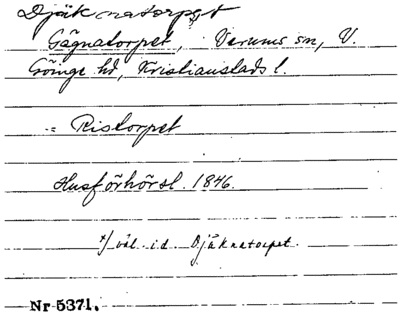 Djäknatorpet
Gögnatorpet, Verums sn, V.
Göinge hd, Kristianstads l.
= Ristorpet
Husförhörsl. 1846.
x/ väl i.d. Djäknatorpet.
Nr 5371.